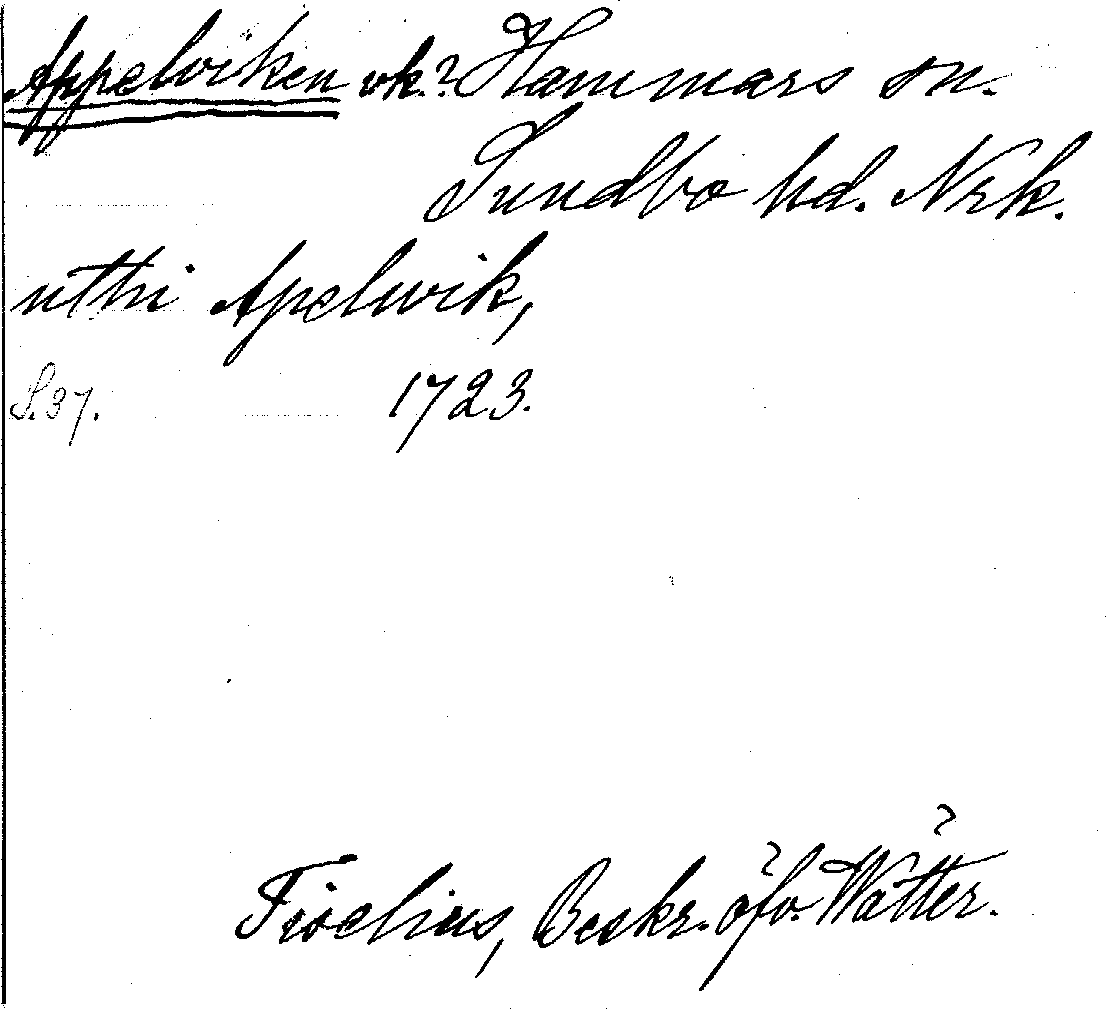 Appelviken vk.? Hammars sn.
Sundbo hd. Nrk.
uthi Apelwik,
S.37. 1723.
Tiselius, Beskr. öfv. Wätter.